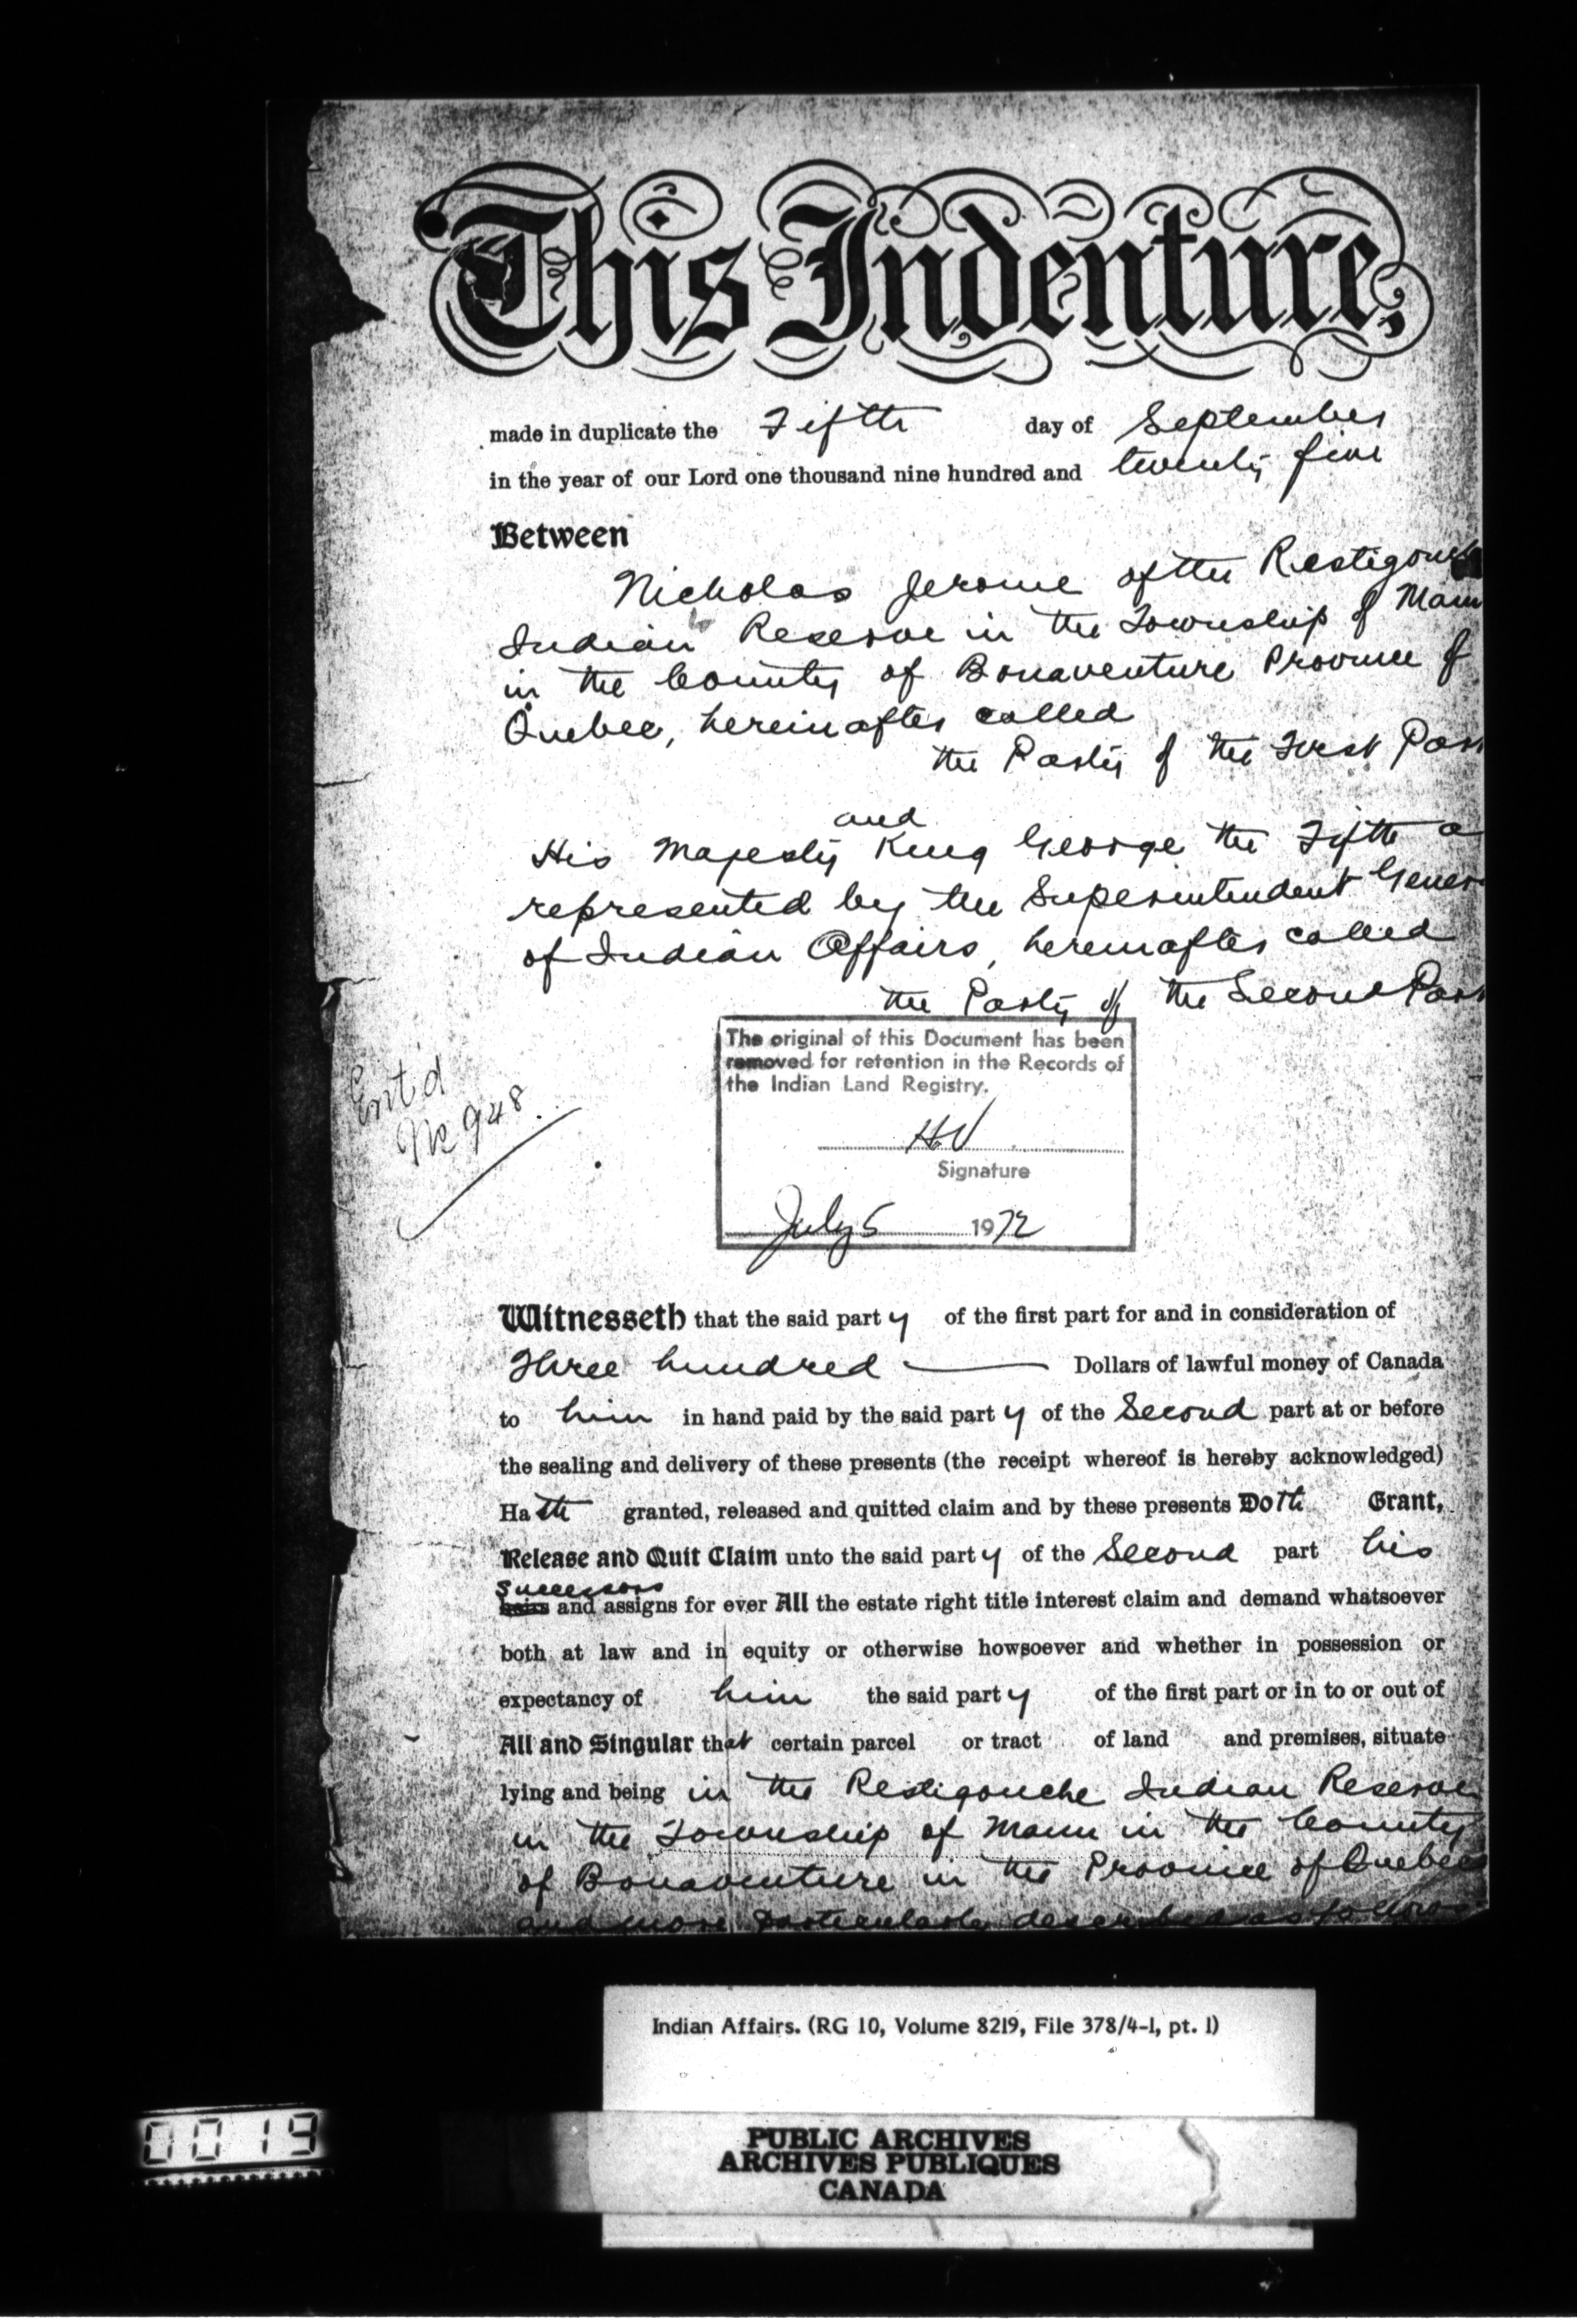 This Indenture,
made in duplicate the Fifth day of September
in the year of our Lord one thousand nine hundred and twenty five
Between
Nicholas Jerome of the Restigouch
Indian Reserve in the Township of Mann
in the County of Bonaventure Province of
Quebec, hereinafter called
the Party of the First Part
and
His Majesty King George the Fifth a
represented by the Superintendent Gener
of Indian Affairs, hereinafter called
the Party of the Second Part
The original of this Document has been
removed for retention in the Records of
the Indian Land Registry.
HV
Signature
July 5 1972
Ent'd
No 948.
Witnesseth that the said party of the first part for and in consideration of
Three hundred — Dollars of lawful money of Canada
to him in hand paid by the said party of the Second part at or before
the sealing and delivery of these presents (the receipt whereof is hereby acknowledged)
Hath granted, released and quitted claim and by these presents Doth Grant,
Release and Quit Claim unto the said party of the Second part his
successors
heirs and assigns for ever All the estate right title interest claim and demand whatsoever
both at law and in equity or otherwise howsoever and whether in possession or
expectancy of him the said party of the first part or in to or out of
All and Singular that certain parcel or tract of land and premises, situate
lying and being in the Restigouche Indian Reserve
in the Township of Mann in the County
of Bonaventure in the Province of Quebec
and more particularly described as follows
Indian Affairs. (RG 10, Volume 8219, File 378/4-1, pt. 1)
0019
PUBLIC ARCHIVES
ARCHIVES PUBLIQUES
CANADA